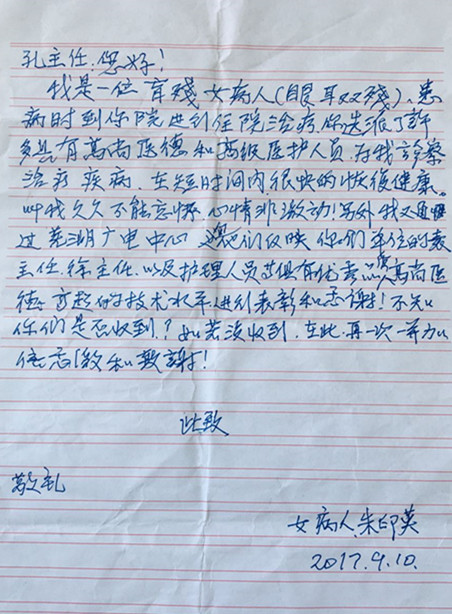 孔主任.您好!
我是一位盲残女病人(眼耳双残)、患
病时到你院进行住院治疗.你选派了许
多具有高尚医德和高级医护人员.为我診察
治疗疾病.在短时间内很快的恢復健康。
叫我久久不能忘怀.心情非激动!另外我又通
过芜湖广电中心 他们反映你们单位的袁
主任.徐主任.以及护理人员 具有优秀 高尚医
德.高超的技术水平进行表彰和感谢!不知
你们是否收到?如若没收到.在此.再一次一并加以
感激和致謝!
此致
敬礼
女病人.朱印英
2017.9.10.